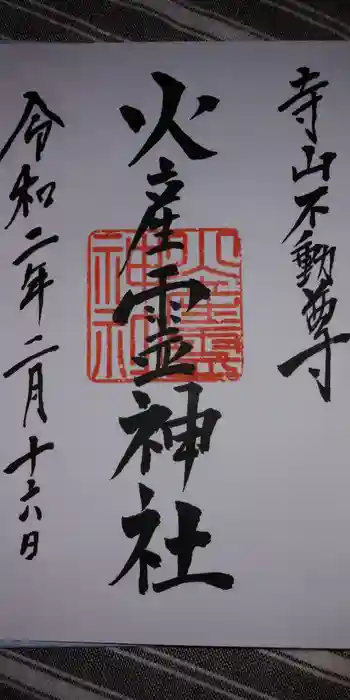 寺山不動尊
火産霊神社
火産霊
神社
令和二年二月十六日